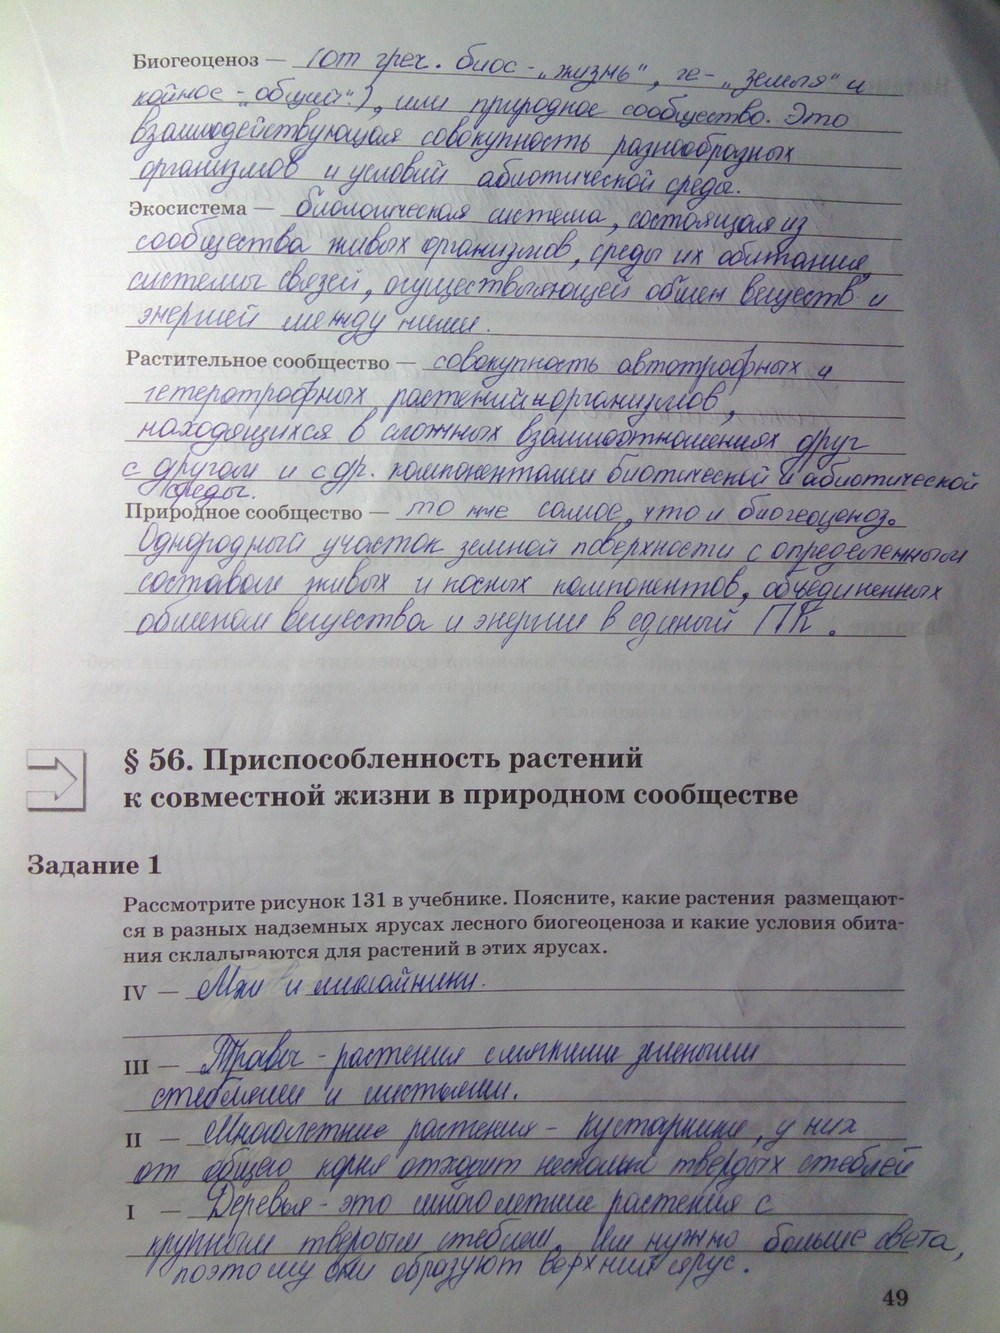 Биогеоценоз — (от греч. биос - „жизнь", ге - „земля" и
койнос - „общий"), или природное сообщество. Это
взаимодействующая совокупность разнообразных
организмов и условий абиотической среды.
Экосистема — биологическая система, состоящая из
сообщества живых организмов, среды их обитания,
системы связей, осуществляющей обмен веществ и
энергией между ними.
Растительное сообщество — совокупность автотрофных и
гетеротрофных растений и организмов,
находящихся в сложных взаимоотношениях друг
с другом и с др. компонентами биотической и абиотической
среды.
Природное сообщество — то же самое, что и биогеоценоз.
Однородный участок земной поверхности с определенным
составом живых и косных компонентов, объединенных
обменом вещества и энергии в единый ПК.
§ 56. Приспособленность растений
к совместной жизни в природном сообществе
Задание 1
Рассмотрите рисунок 131 в учебнике. Поясните, какие растения размещают-
ся в разных надземных ярусах лесного биогеоценоза и какие условия обита-
ния складываются для растений в этих ярусах.
IV — Мхи и лишайники.
III — Травы - растения с мягкими зелеными
стеблями и листьями.
II — Многолетние растения - кустарники, у них
от общего корня отходит несколько твердых стеблей
I — Деревья - это многолетние растения с
крупным твердым стеблем. Им нужно больше света,
поэтому они образуют верхний ярус.
49